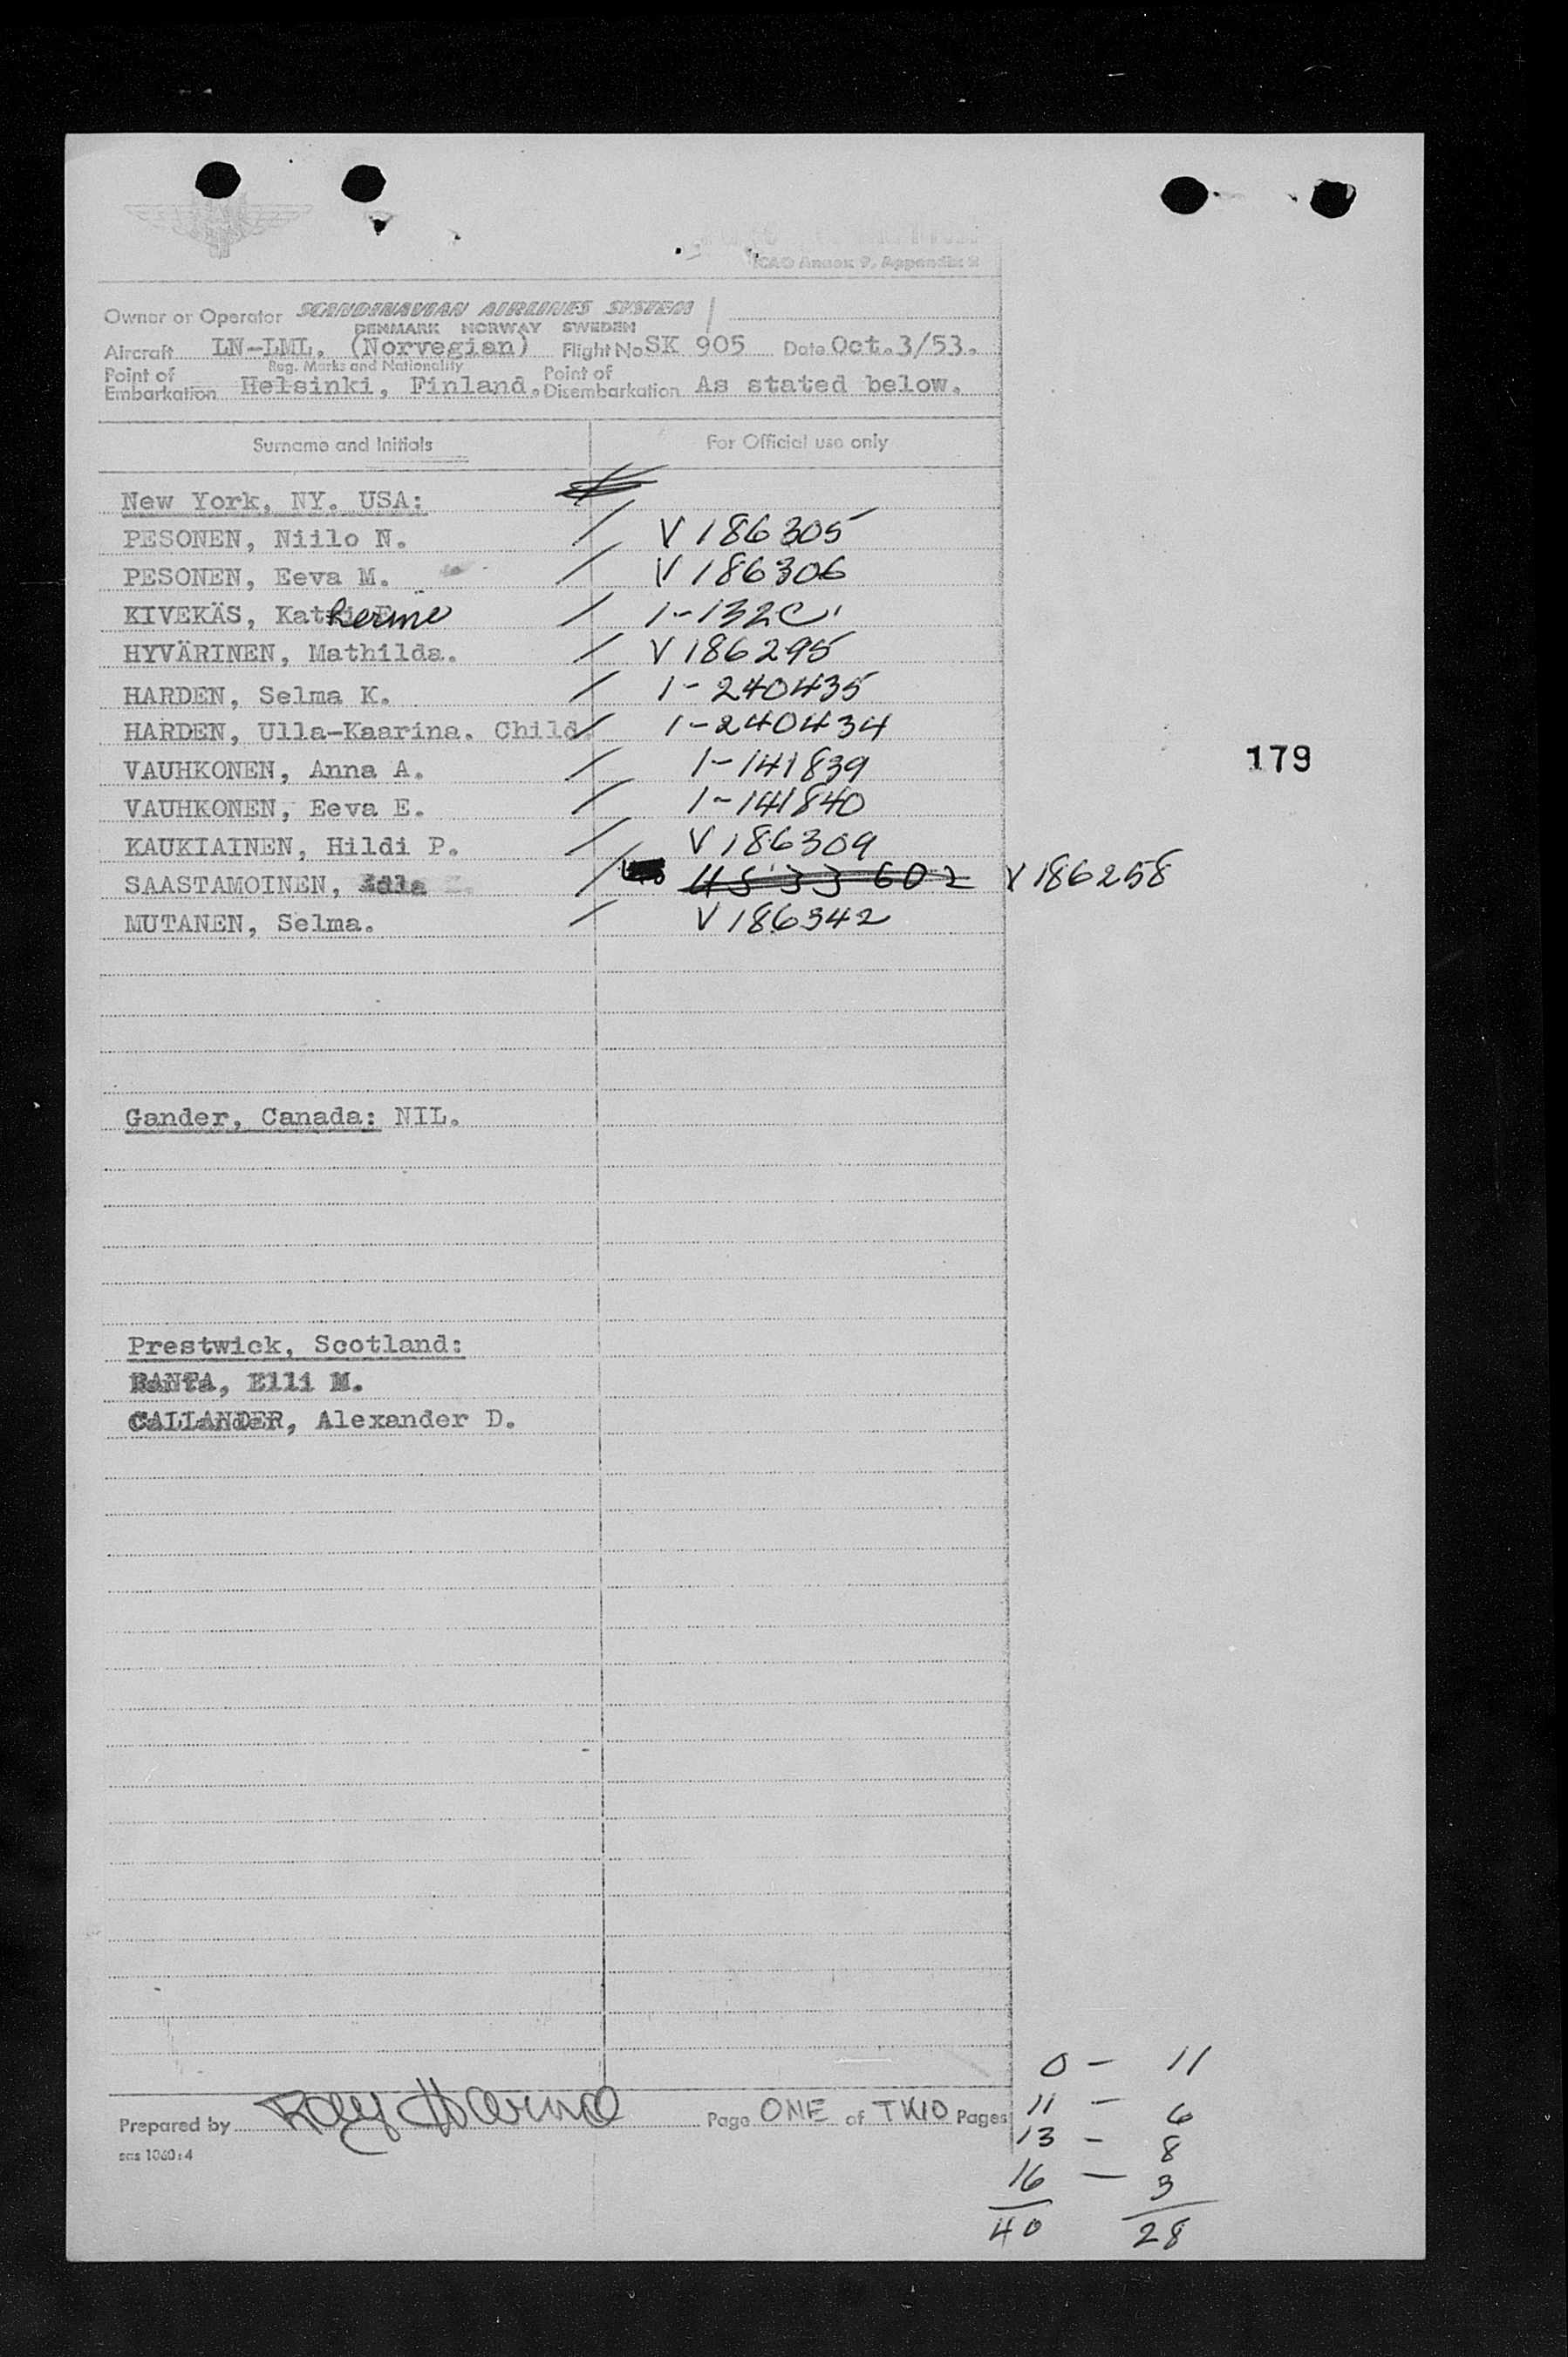 ICAO Annex 9, Appendix 2
Owner or Operator SCANDINAVIAN AIRLINES SYSTEM
DENMARK NORWAY SWEDEN
Aircraft LN-LML. (Norvegian) Flight No SK 905 Date Oct.3/53.
Reg. Marks and Nationality
Point of Embarkation Helsinki, Finland. Point of Disembarkation As stated below.
Surname and Initials For Official use only
New York, NY. USA:
PESONEN, Niilo N. / V 186305
PESONEN, Eeva M. / V 186306
KIVEKÄS, Katherine / 1-132C
HYVÄRINEN, Mathilda. / V 186295
HARDEN, Selma K. / 1-240435
HARDEN, Ulla-Kaarina. Child. / 1-240434
VAUHKONEN, Anna A. / 1-141839
179
VAUHKONEN, Eeva E. / 1-141840
KAUKIAINEN, Hildi P. / V 186309
SAASTAMOINEN, / V 186258
MUTANEN, Selma. / V 186342
Gander, Canada: NIL.
Prestwick, Scotland:
RANTA, Elli M.
CALLANDER, Alexander D.
0 - 11
11 - 6
13 - 8
16 - 3
40 28
Prepared by Page ONE of TWO Pages
sas 1060:4